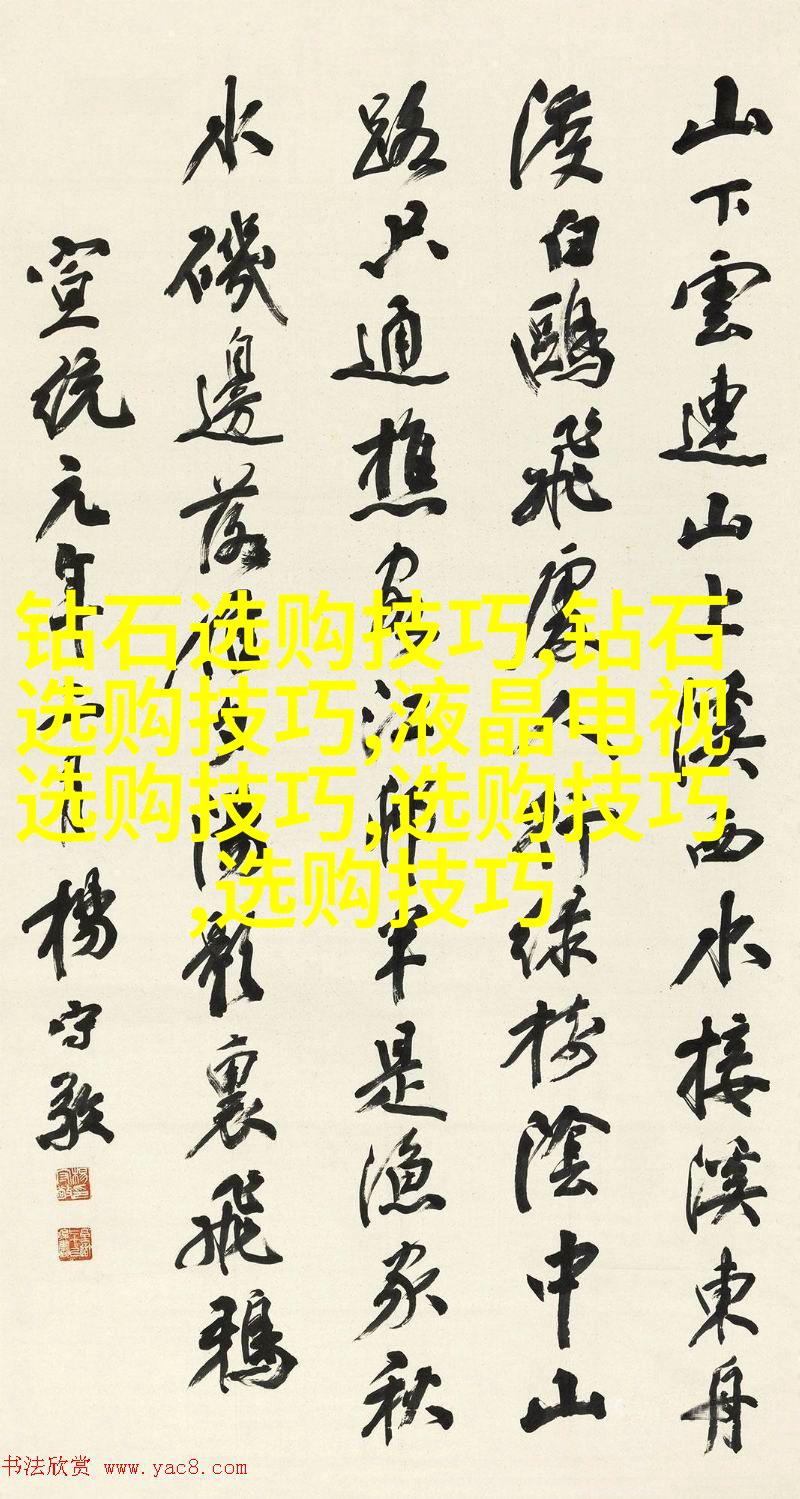 山下雲連山上溪西水接溪東舟
渡白鷗飛處人行綠樹陰中山
路只通樵客江邨半是漁家秋
水磯邊落雁夕陽影裏飛鴉
宣統元年 月楊守敬
钻石选购技巧,钻石
选购技巧,液晶电视
选购技巧,选购技巧
,选购技巧
书法欣赏 www.yac8.com